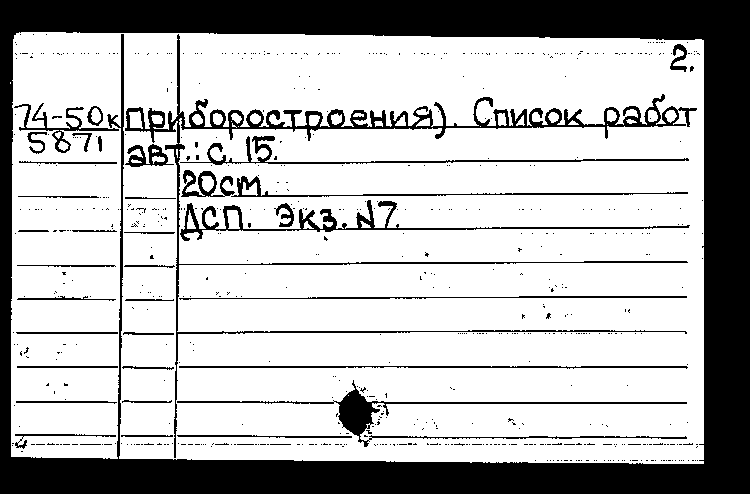 2.
74-50к приборостроения). Список работ
5871 авт.: с. 15.
20см.
ДСП. Экз. N7.
4